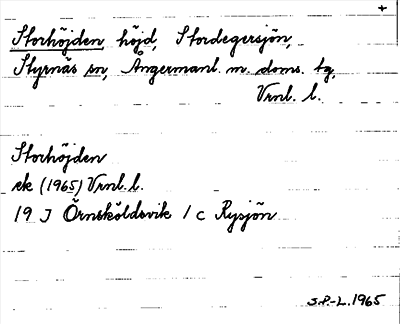 +
Storhöjden, höjd, Stordegersjön,
Styrnäs sn, Ångermanl. m. doms. tg,
Vrnl. l.
Storhöjden
ek (1965) Vrnl. l.
19 J Örnsköldsvik 1 c Rysjön
S.P.-L. 1965